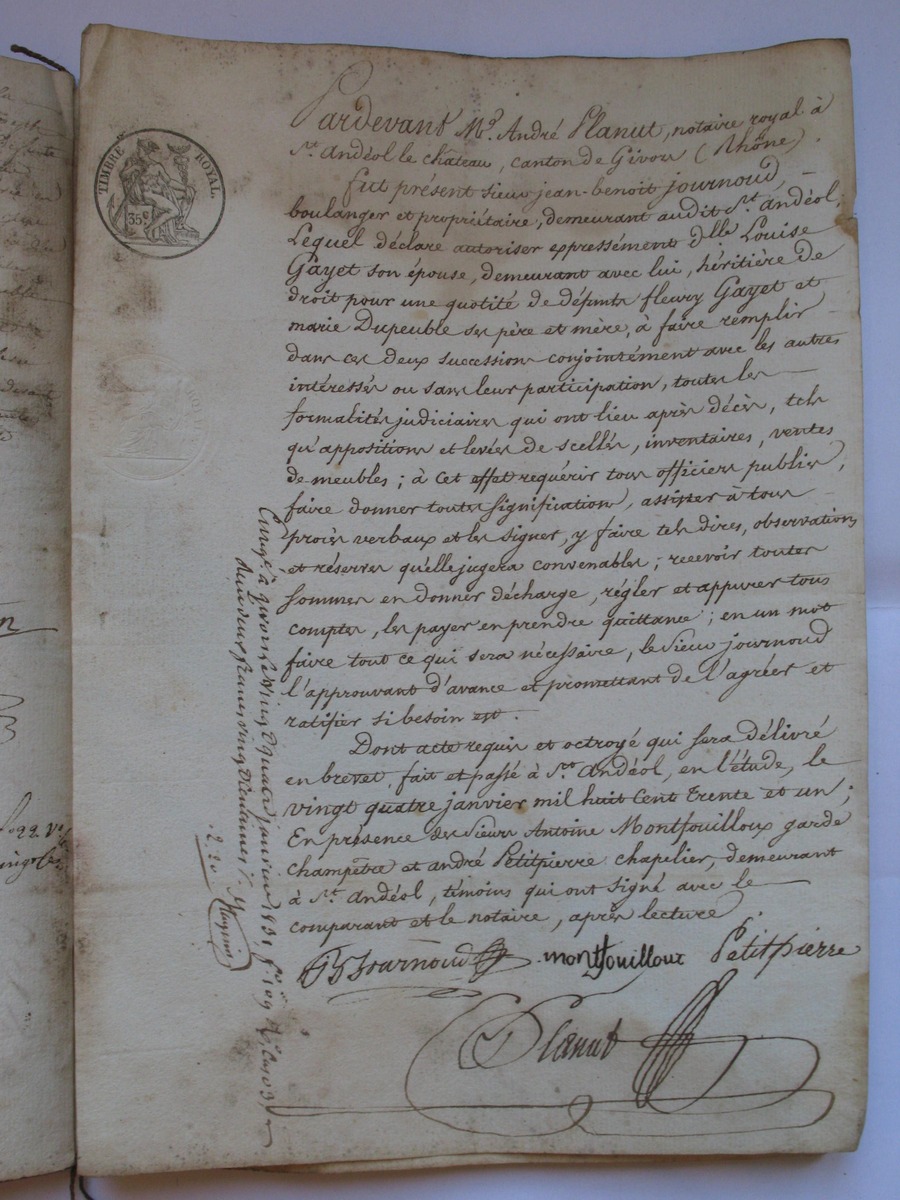 TIMBRE ROYAL.
35c
Pardevant Me. André Planut, notaire royal à
St. andéol le château, canton de Givors (Rhône).
fut présent sieur jean-benoit journoud,
boulanger et propriétaire, demeurant audit St. andéol,
Lequel déclare autoriser expressément dlle Louise
Gayet son épouse, demeurant avec lui, héritière de
droit pour une quotité de défunts fleury Gayet et
marie Dupeuble ses père et mère, à faire remplir
dans ces deux successions conjointement avec les autres
intéressés ou sans leur participation, toutes les
formalités judiciaires qui ont lieu après décès, tels
qu'appositions et levées de scellés, inventaires, ventes
de meubles; à cet effet requérir tous officiers publics,
faire donner toutes significations, assister à tous
procès verbaux et les signer, y faire tels dires, observations
et réserves qu'elle jugera convenables; recevoir toutes
sommes en donner décharge, régler et appurer tous
comptes, les payer en prendre quittance; en un mot
faire tout ce qui sera nécessaire, le sieur journoud
l'approuvant d'avance et promettant de l'agréer et
ratifier si besoin est.
Dont acte requis et octroyé qui sera délivré
en brevet, fait et passé à St. andéol, en l'étude, le
vingt quatre janvier mil huit cent trente et un;
En présence des sieurs Antoine Montfouilloux garde
champêtre et andré Petitpierre chapelier, demeurant
à St. andéol, témoins qui ont signé avec le
comparant et le notaire, après lecture.
JB Journoud montfouilloux Petitpierre
Planut
à givors le vingt quatre janvier 1831, fo. 109
deux francs vingt centimes
2.20